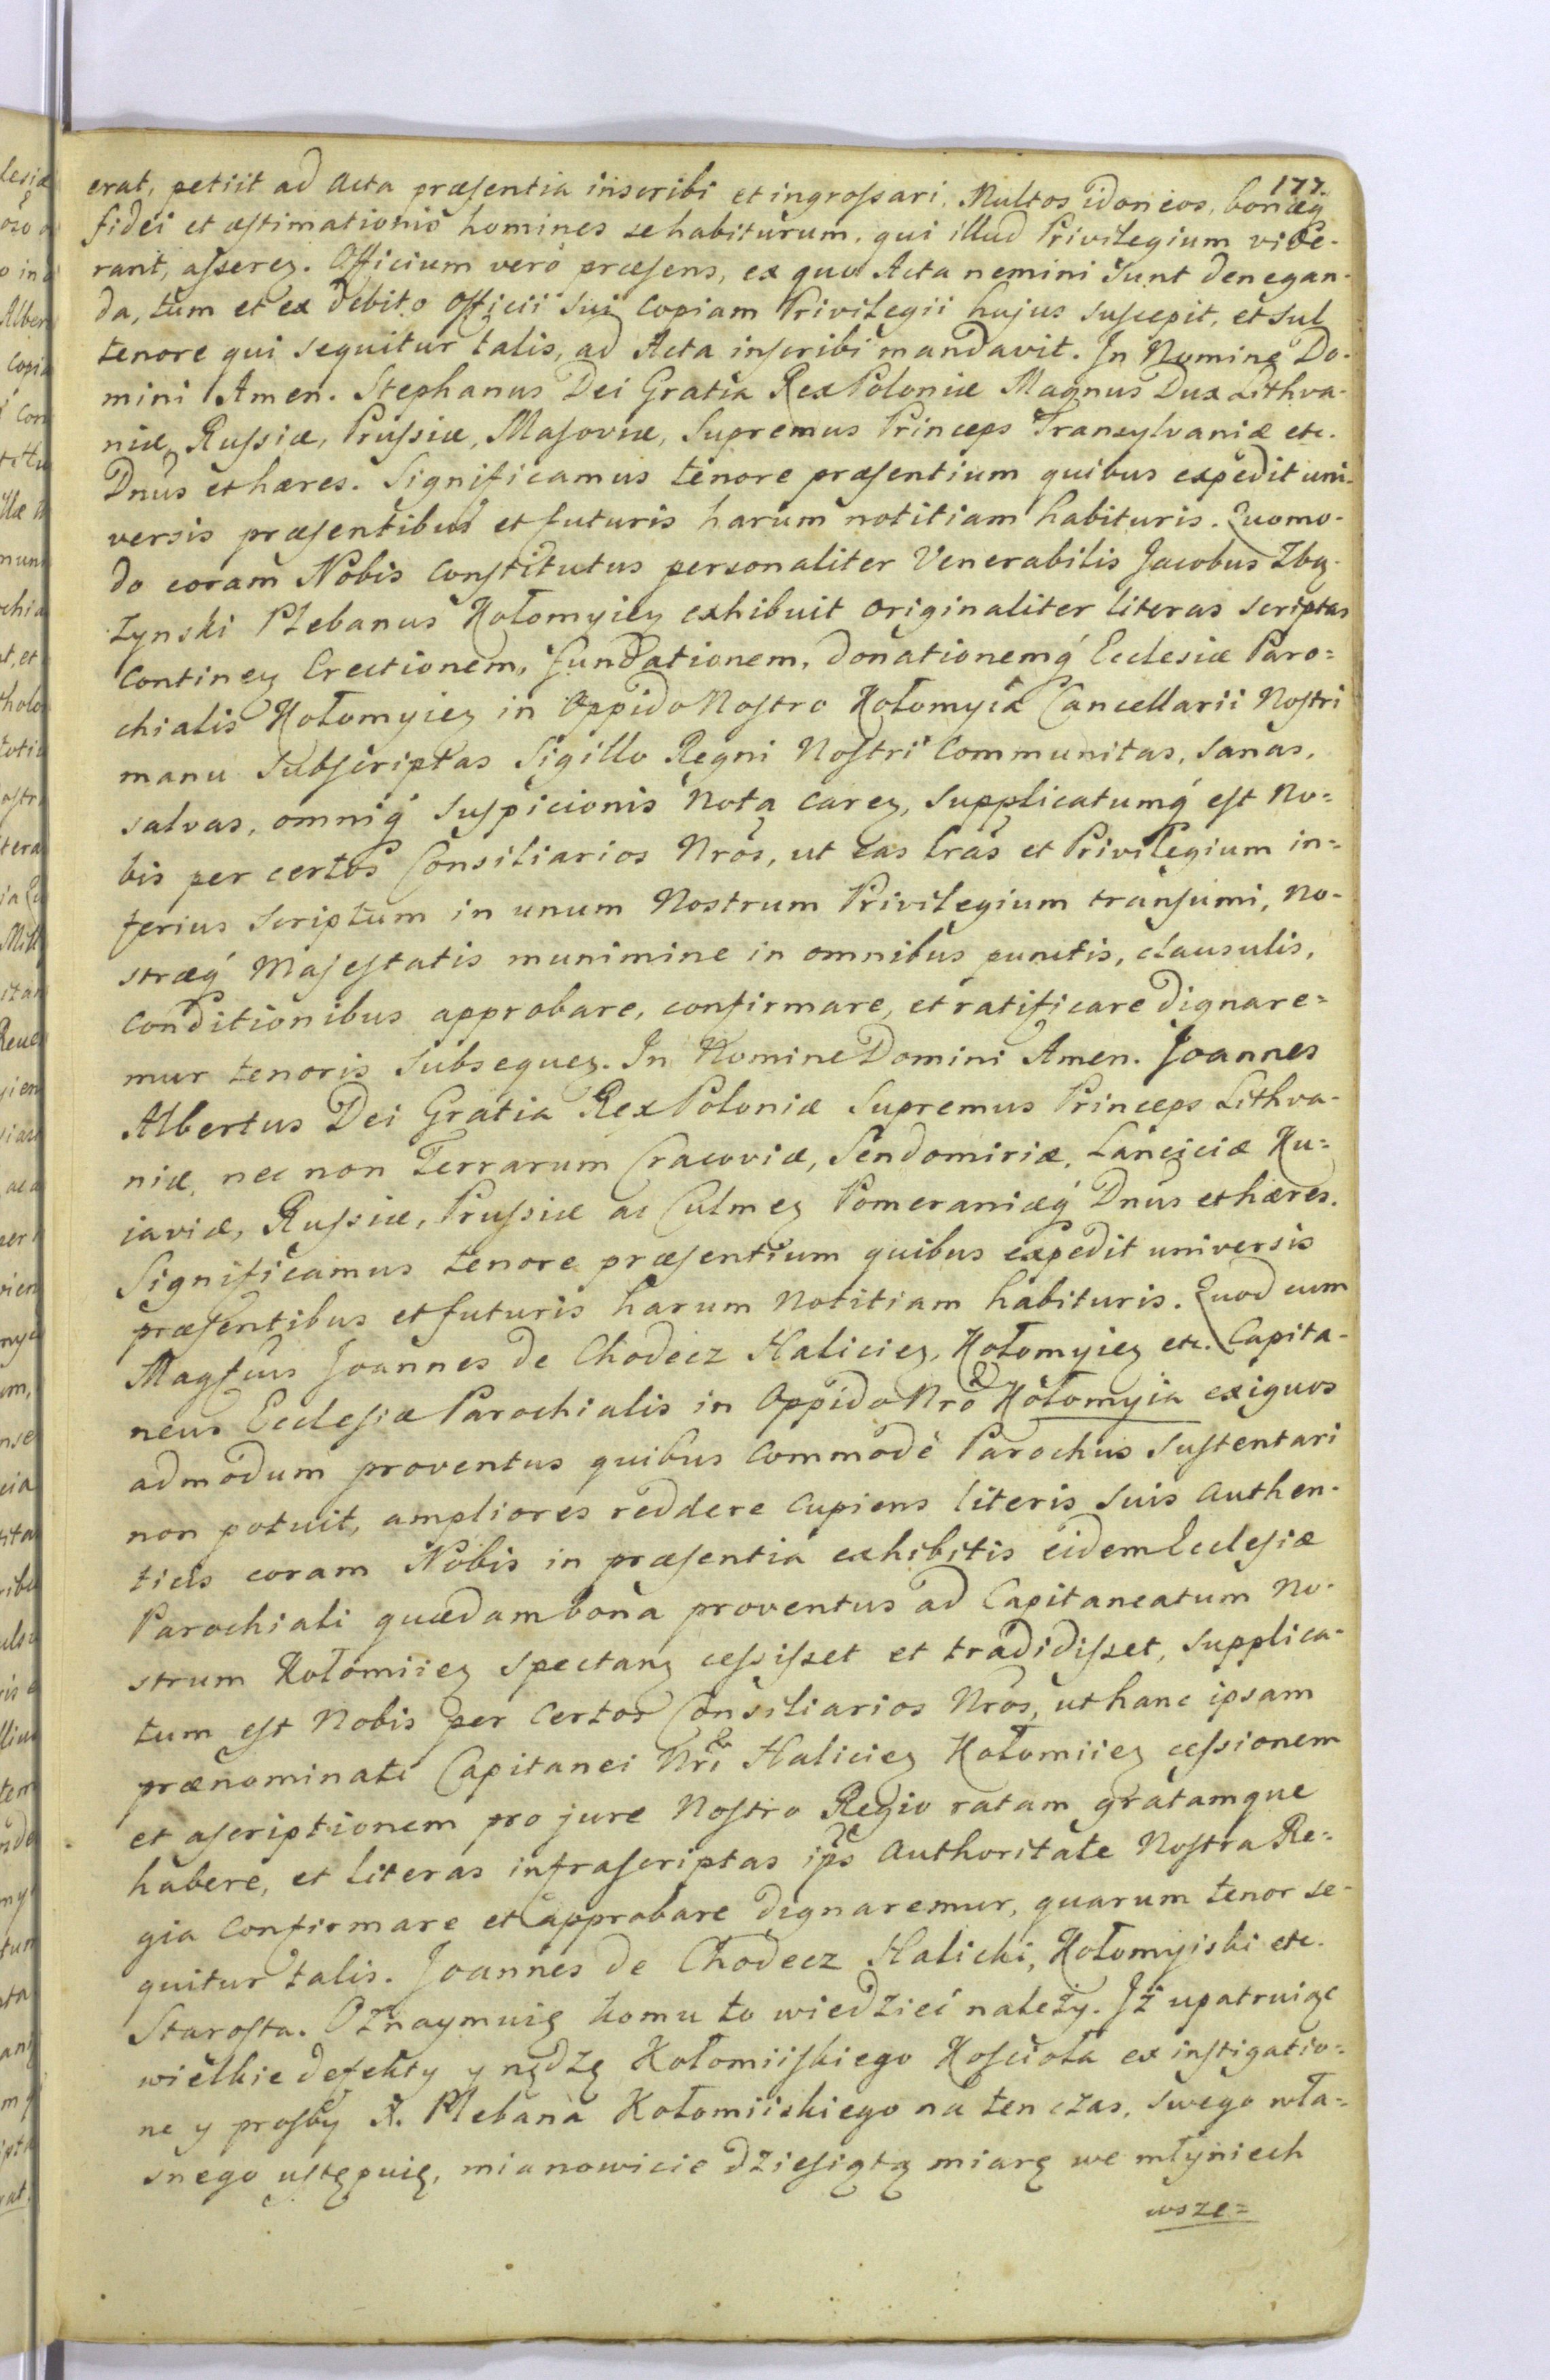 177.
erat, petiit ad Acta præsentia inscribi et ingrossari. Multos idoneos, bonæq́
fidei et æstimationis homines se habiturum, qui illud Privilegium vide-
rant, asserez. Officium verò præsens, ex quo Acta nemini sunt denegan-
da, tum et ex debito Officii sui Copiam Privilegii hujus suscepit, et sub
tenore qui sequitur talis, ad Acta inscribi mandavit. In Nomine Do-
mini Amen. Stephanus Dei Gratia Rex Poloniæ Magnus Dux Lithva-
niæ, Russiæ, Prussiæ, Masoviæ, Supremus Princeps Transylvaniæ etc.
Dnus et hæres. Significamus tenore præsentium quibus expedit uni-
versis præsentibus et futuris harum notitiam habituris. Quomo-
do coram Nobis Constitutus personaliter Venerabilis Jacobus Zbą-
zynski Plebanus Kołomyiez exhibuit originaliter literas scriptas
Continez Erectionem, fundationem, donationemq́ Ecclesiæ Paro=
chialis Kołomyiez in Oppido Nostro Kołomyia Cancellarii Nostri
manu subscriptas Sigillo Regni Nostri Communitas, sanas,
salvas, omniq́ suspicionis nota carez, supplicatumq́ est No=
bis per certos Consiliarios Nrōs, ut eas lrās et Privilegium in=
ferius scriptum in unum Nostrum Privilegium transumi, no-
stræq́ Majestatis munimine in omnibus punctis, clausulis,
Conditionibus approbare, confirmare, et ratificare dignare=
mur tenoris subsequez. In Nomine Domini Amen. Joannes
Albertus Dei Gratia Rex Poloniæ Supremus Princeps Lithva-
niæ, nec non Terrarum Cracoviæ, Sendomiriæ, Lanciciæ Ku=
iaviæ, Russiæ, Prussiæ ac Culmez Pomeraniæq́ Dnus et hæres.
Significamus tenore præsentium quibus expedit universis
præsentibus et futuris harum Notitiam habituris. Quod cum
Magfcus Joannes de Chodecz Haliciez, Kołomyiez etc. Capita-
neus Ecclesiæ Parochialis in Oppido Nrō Kołomyia exiguos
admodum proventus quibus Commodè Parochus sustentari
non potuit, ampliores reddere Cupiens literis suis Authen-
ticis coram Nobis in præsentia exhibitis eidem Ecclesiæ
Parochiali quædam bona proventus ad Capitaneatum No-
strum Kołomiiez spectanz cessisset et tradidisset, supplica-
tum est Nobis per Certos Consiliarios Nrōs, ut hanc ipsam
prænominati Capitanei Nrī Haliciez Kołomiiez cessionem
et ascriptionem pro jure Nostro Regio ratam gratamque
habere, et literas infrascriptas ips̄ Authoritate Nostra Re=
gia Confirmare et approbare dignaremur, quarum tenor se-
quitur talis. Joannes de Chodecz Halicki, Kołomyiski etc.
Starosta. Oznaymuię komu to wiedzieć należy. Jż upatruiąc
wielkie defekty y nędzę Kołomiiskiego Kościoła ex instigatio=
ne y prosby X. Plebana Kołomiiskiego na ten czas, swego wła=
snego ustępuię, mianowicie dziesiątą miarę we młyniech
wsze=